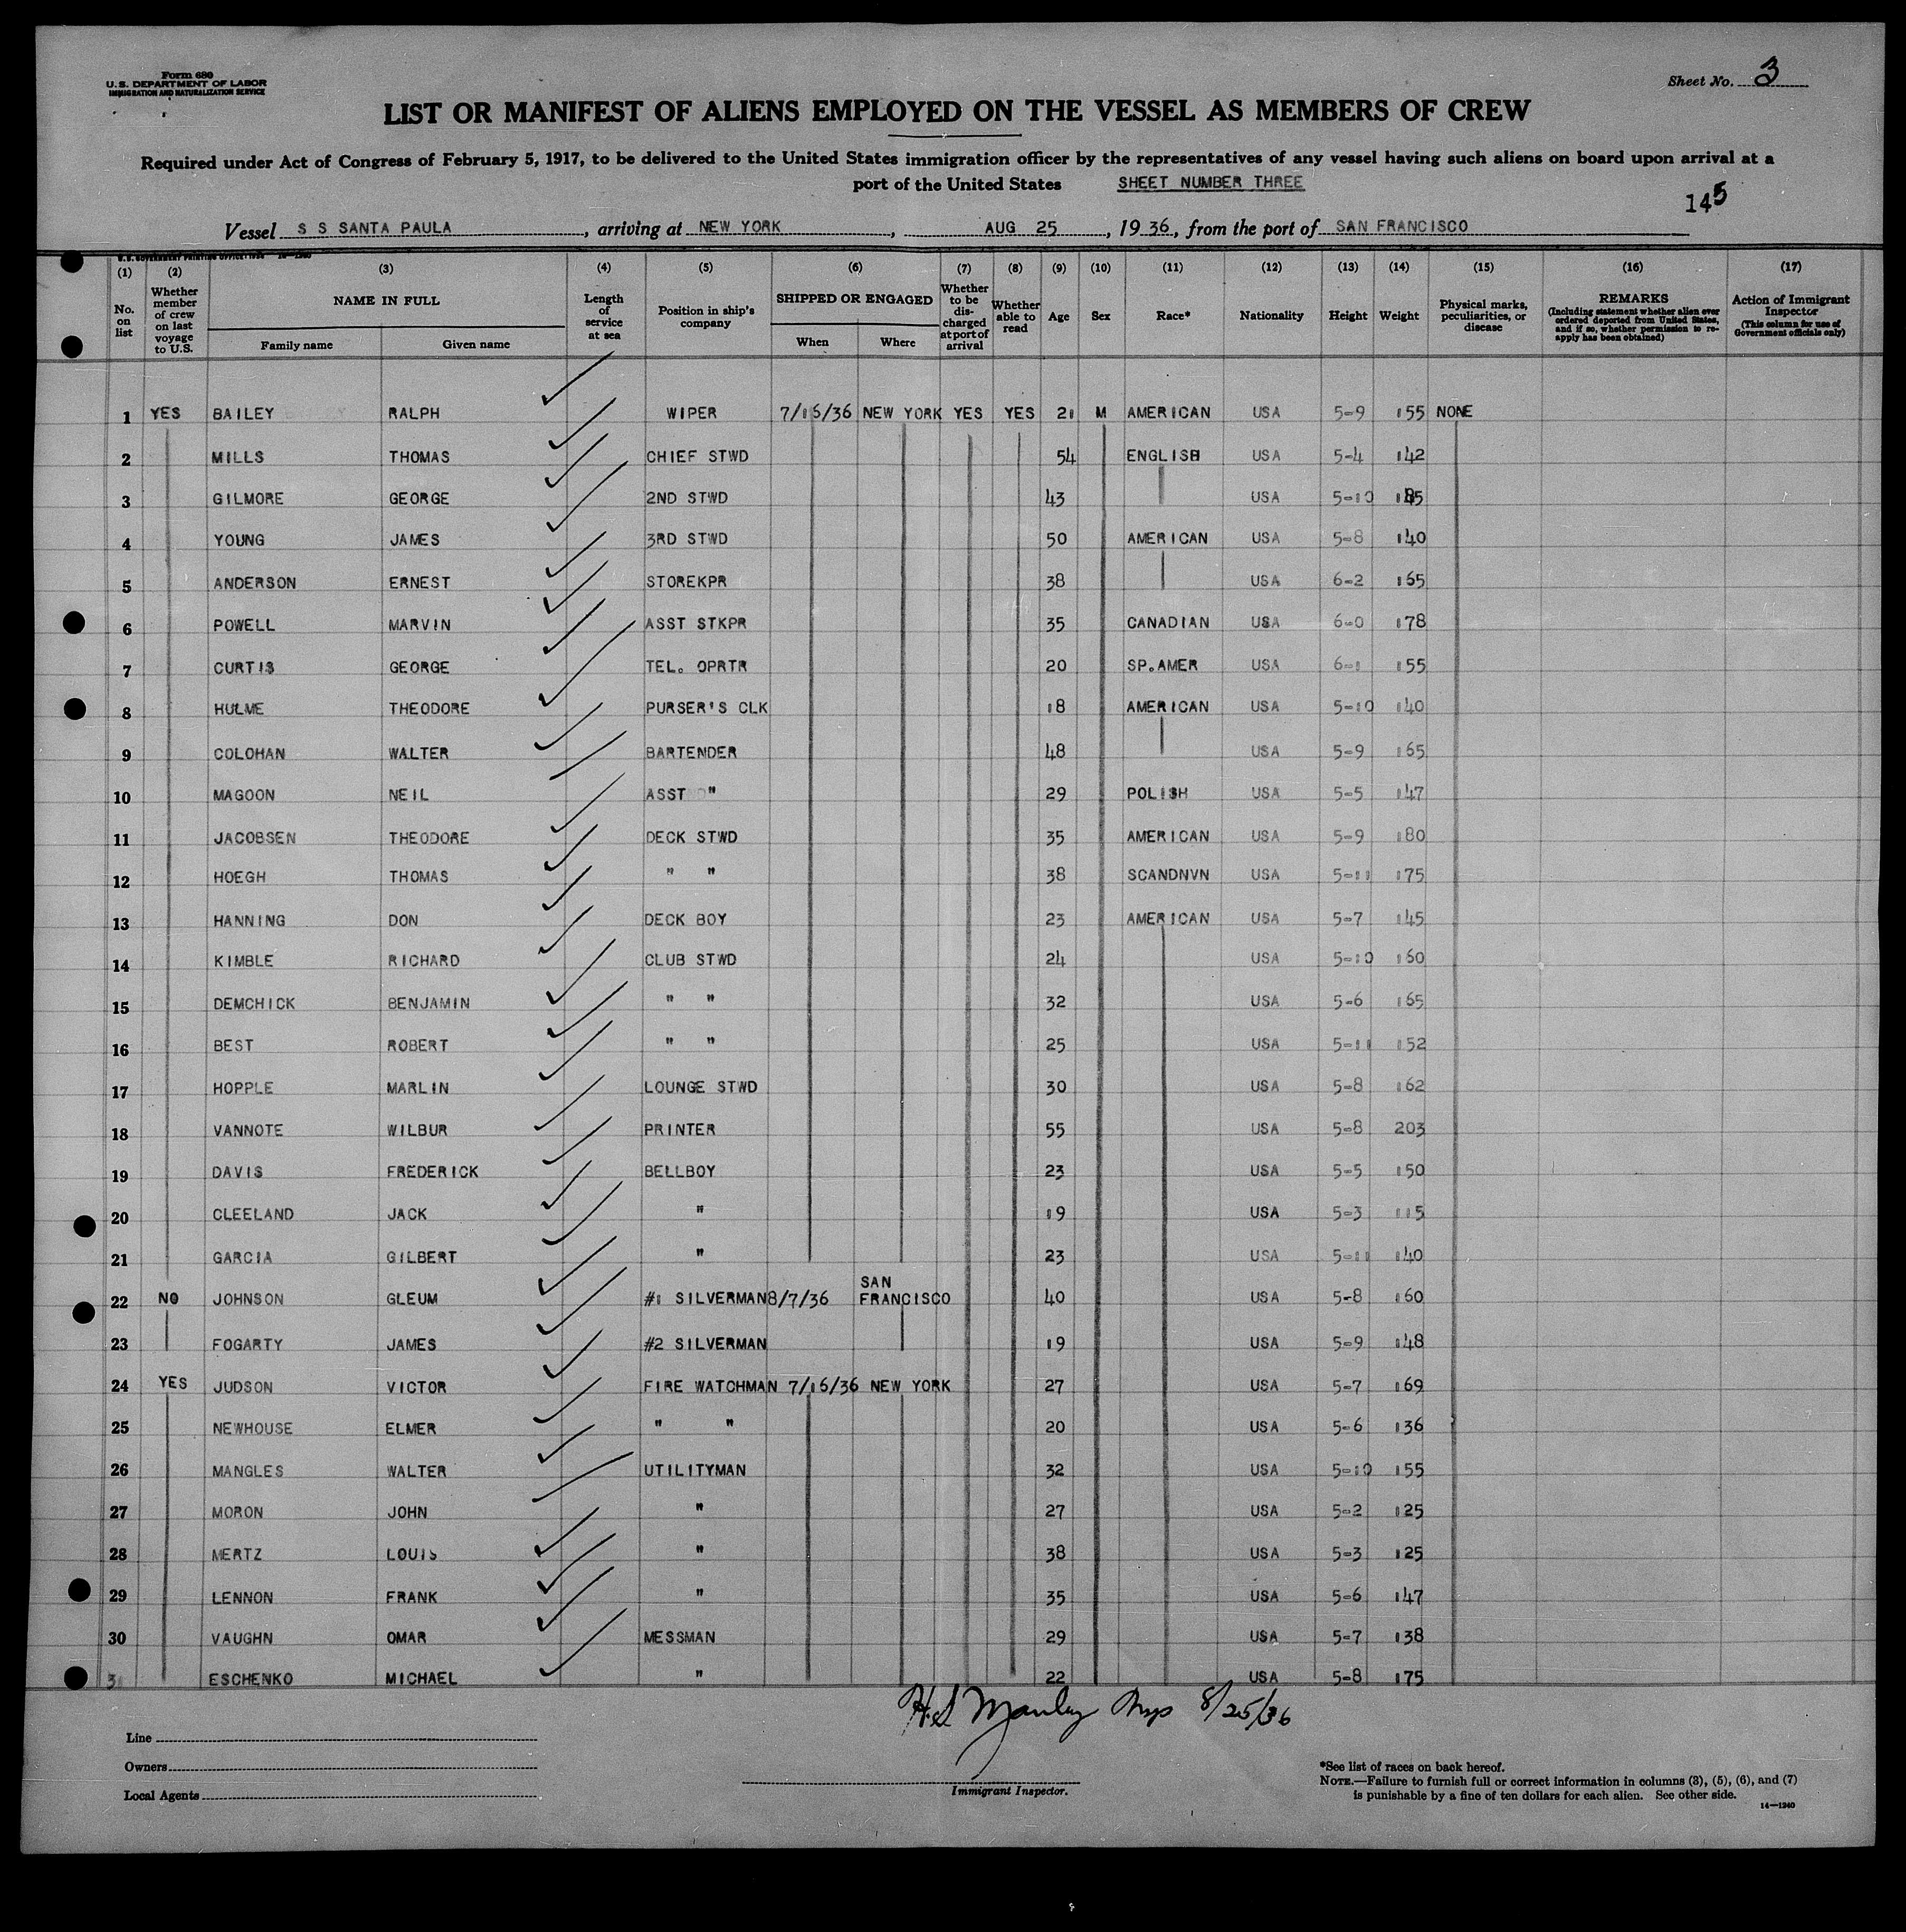 Form 680
U. S. DEPARTMENT OF LABOR
IMMIGRATION AND NATURALIZATION SERVICE
Sheet No. 3
LIST OR MANIFEST OF ALIENS EMPLOYED ON THE VESSEL AS MEMBERS OF CREW
Required under Act of Congress of February 5, 1917, to be delivered to the United States immigration officer by the representatives of any vessel having such aliens on board upon arrival at a
port of the United States SHEET NUMBER THREE
145
Vessel S S SANTA PAULA, arriving at NEW YORK, AUG 25, 1936, from the port of SAN FRANCISCO
(1) (2) (3) (4) (5) (6) (7) (8) (9) (10) (11) (12) (13) (14) (15) (16) (17)
No. on list
Whether member of crew on last voyage to U.S.
NAME IN FULL
Family name Given name
Length of service at sea
Position in ship's company
SHIPPED OR ENGAGED
When Where
Whether to be discharged at port of arrival
Whether able to read
Age
Sex
Race*
Nationality
Height
Weight
Physical marks, peculiarities, or disease
REMARKS
(Including statement whether alien ever ordered deported from United States, and if so, whether permission to reapply has been obtained)
Action of Immigrant Inspector
(This column for use of Government officials only)
1 YES BAILEY RALPH WIPER 7/16/36 NEW YORK YES YES 21 M AMERICAN USA 5-9 155 NONE
2 MILLS THOMAS CHIEF STWD 54 ENGLISH USA 5-4 142
3 GILMORE GEORGE 2ND STWD 43 USA 5-10
4 YOUNG JAMES 3RD STWD 50 AMERICAN USA 5-8 140
5 ANDERSON ERNEST STOREKPR 38 USA 6-2 165
6 POWELL MARVIN ASST STKPR 35 CANADIAN USA 6-0 178
7 CURTIS GEORGE TEL. OPRTR 20 SP.AMER USA 6-1 155
8 HULME THEODORE PURSER'S CLK 18 AMERICAN USA 5-10 140
9 COLOHAN WALTER BARTENDER 48 USA 5-9 165
10 MAGOON NEIL ASST " 29 POLISH USA 5-5 147
11 JACOBSEN THEODORE DECK STWD 35 AMERICAN USA 5-9 180
12 HOEGH THOMAS " " 38 SCANDNVN USA 5-11 175
13 HANNING DON DECK BOY 23 AMERICAN USA 5-7 145
14 KIMBLE RICHARD CLUB STWD 24 USA 5-10 160
15 DEMCHICK BENJAMIN " " 32 USA 5-6 165
16 BEST ROBERT " " 25 USA 5-11 152
17 HOPPLE MARLIN LOUNGE STWD 30 USA 5-8 162
18 VANNOTE WILBUR PRINTER 55 USA 5-8 203
19 DAVIS FREDERICK BELLBOY 23 USA 5-5 150
20 CLEELAND JACK " 19 USA 5-3 115
21 GARCIA GILBERT " 23 USA 5-11 140
22 NO JOHNSON GLEUM #1 SILVERMAN 8/7/36 SAN FRANCISCO 40 USA 5-8 160
23 FOGARTY JAMES #2 SILVERMAN 19 USA 5-9 148
24 YES JUDSON VICTOR FIRE WATCHMAN 7/16/36 NEW YORK 27 USA 5-7 169
25 NEWHOUSE ELMER " " 20 USA 5-6 136
26 MANGLES WALTER UTILITYMAN 32 USA 5-10 155
27 MORON JOHN " 27 USA 5-2 125
28 MERTZ LOUIS " 38 USA 5-3 125
29 LENNON FRANK " 35 USA 5-6 147
30 VAUGHN OMAR MESSMAN 29 USA 5-7 138
31 ESCHENKO MICHAEL " 22 USA 5-8 175
H.S. Manley Insp 8/25/36
Line
Owners
Local Agents
Immigrant Inspector.
*See list of races on back hereof.
NOTE.—Failure to furnish full or correct information in columns (3), (5), (6), and (7)
is punishable by a fine of ten dollars for each alien. See other side.
14—1240